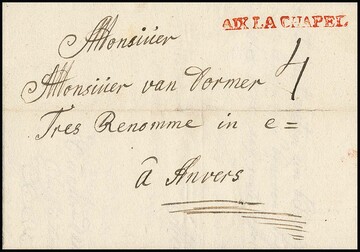 AIX LA CHAPEL
Monsiüer
Monsiüer van Dormer
4
Tres Renomme in e=
â Anvers